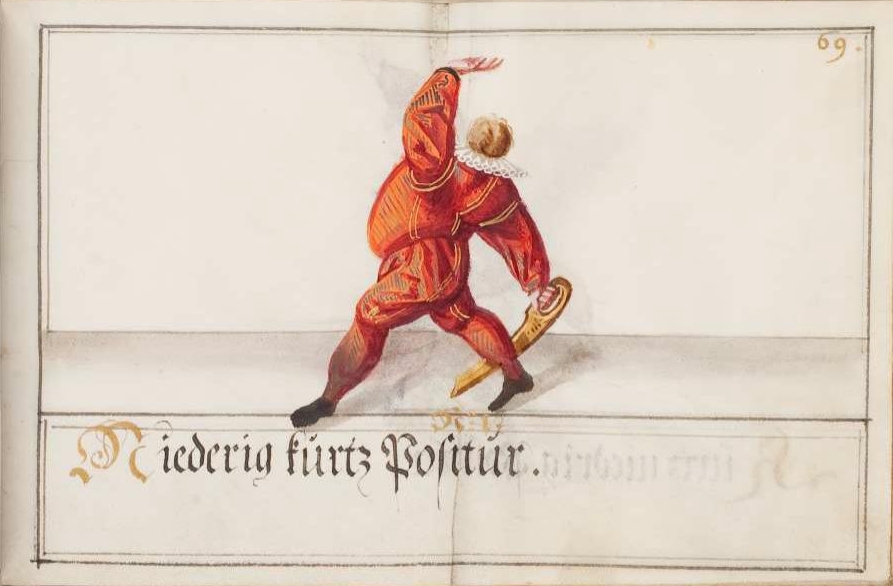 69.
Niederig kürtz Positur.